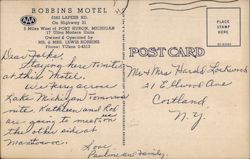 ROBBINS MOTEL
5165 LAPEER RD.
On Highway 21
5 Miles West of PORT HURON, MICHIGAN
17 Ultra Modern Units
Owned & Operated by
MR. & MRS. LEWIS ROBBINS
Phone: YUkon
POST CARD
Dear Folks,
Staying here tonite
at this Motel.
We ferry across
Lake Michigan tomorrow
nite. Kathleen and Rod
are going to meet us
the other side at
Manitowoc.
Love,
Family.
Mr & Mrs Harold Lockwood
21 Elwood Ave
Cortland,
N.Y.